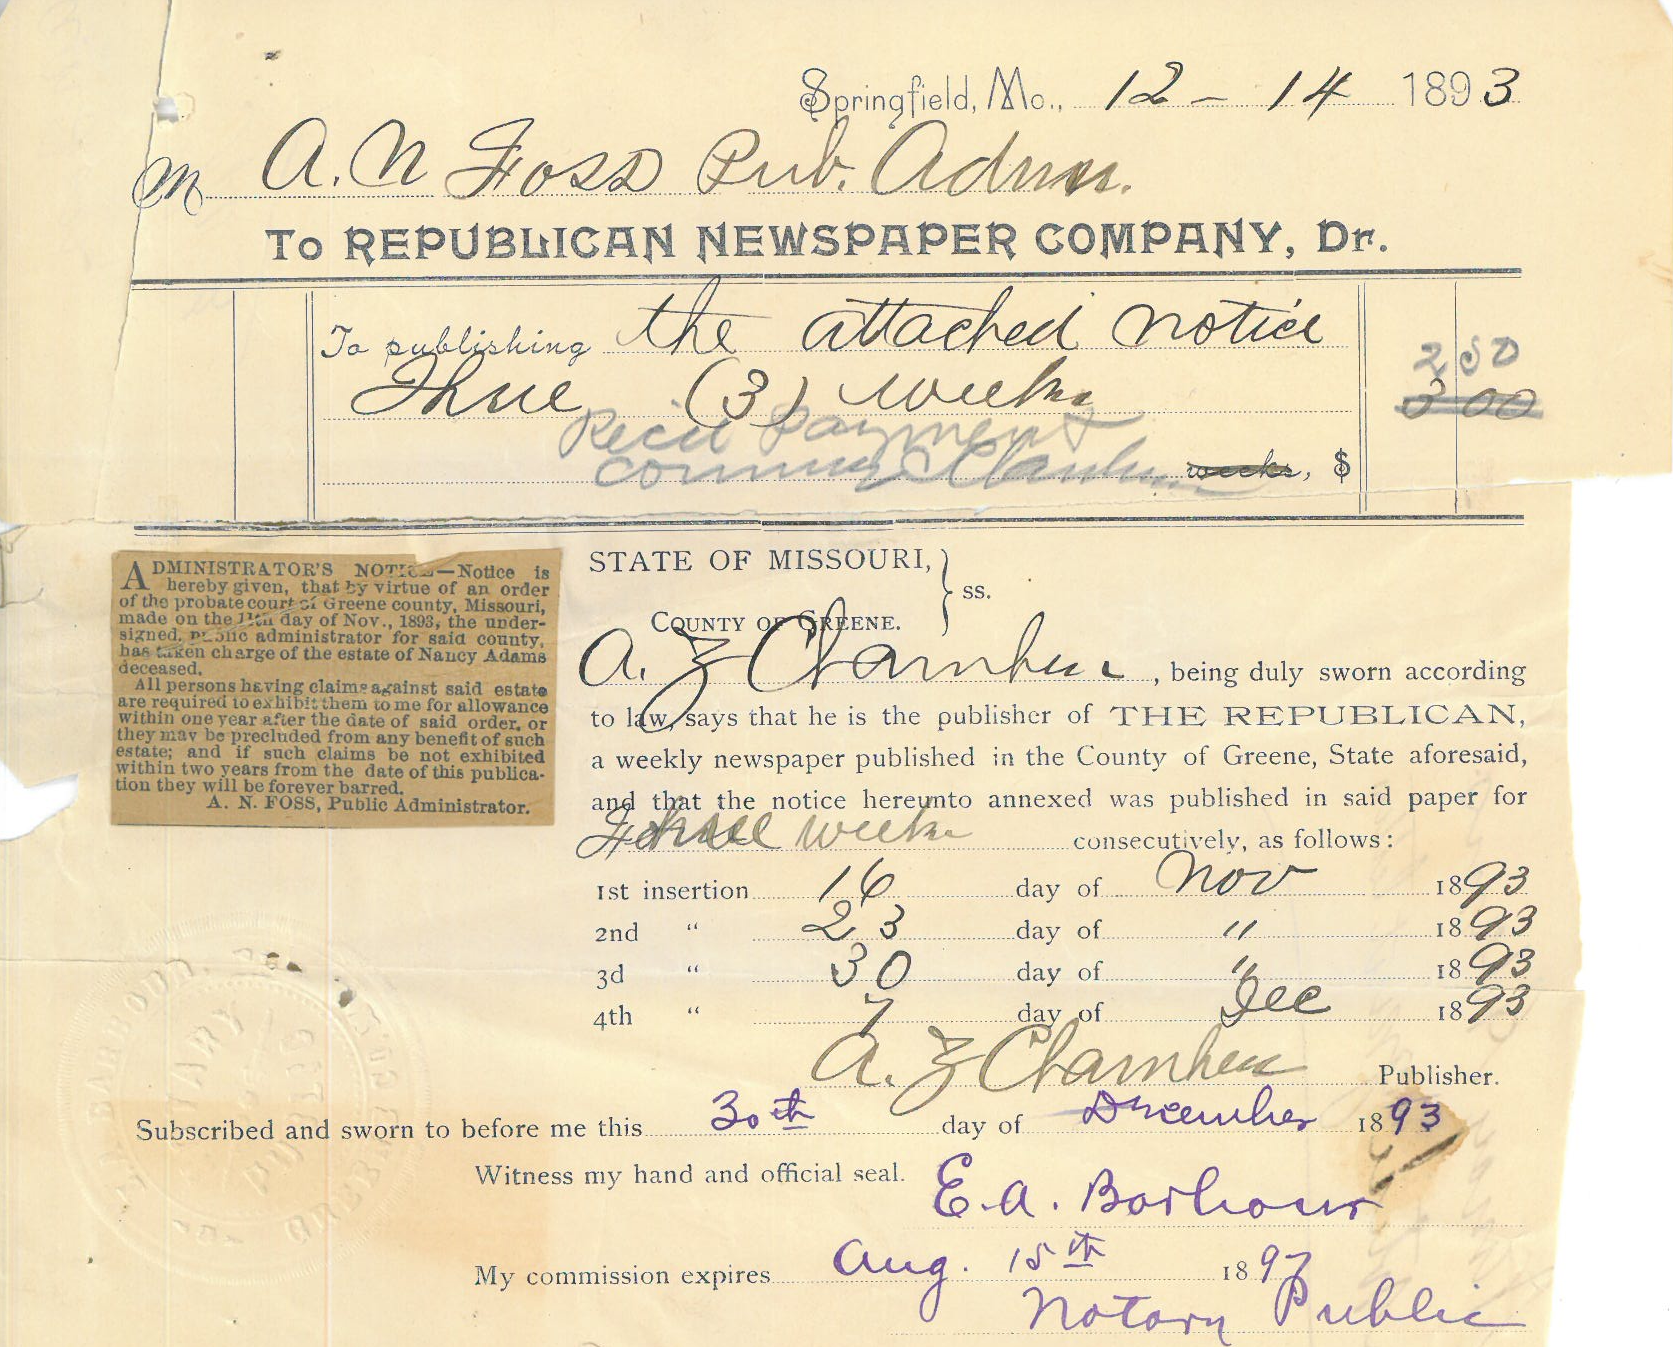 Springfield, Mo., 12 - 14 1893
M A. N Foss Pub. Admr.
To REPUBLICAN NEWSPAPER COMPANY, Dr.
To publishing the attached notice
Three (3) weeks
2 50
3 00
Recd Payment
weeks, $
ADMINISTRATOR'S NOTICE—Notice is
hereby given, that by virtue of an order
of the probate court of Greene county, Missouri,
made on the 11th day of Nov., 1893, the under-
signed, public administrator for said county,
has taken charge of the estate of Nancy Adams
deceased.
All persons having claims against said estate
are required to exhibit them to me for allowance
within one year after the date of said order, or
they may be precluded from any benefit of such
estate; and if such claims be not exhibited
within two years from the date of this publica-
tion they will be forever barred.
A. N. FOSS, Public Administrator.
STATE OF MISSOURI, } ss.
COUNTY OF GREENE.
A. Z Chamber , being duly sworn according
to law, says that he is the publisher of THE REPUBLICAN,
a weekly newspaper published in the County of Greene, State aforesaid,
and that the notice hereunto annexed was published in said paper for
three weeks consecutively, as follows:
1st insertion 16 day of Nov 1893
2nd " 23 day of " 1893
3d " 30 day of " 1893
4th " 7 day of Dec 1893
A. Z Chamber Publisher.
Subscribed and sworn to before me this 30th day of December 1893
Witness my hand and official seal. E. A. Barbour
My commission expires Aug. 15th 1897
Notary Public